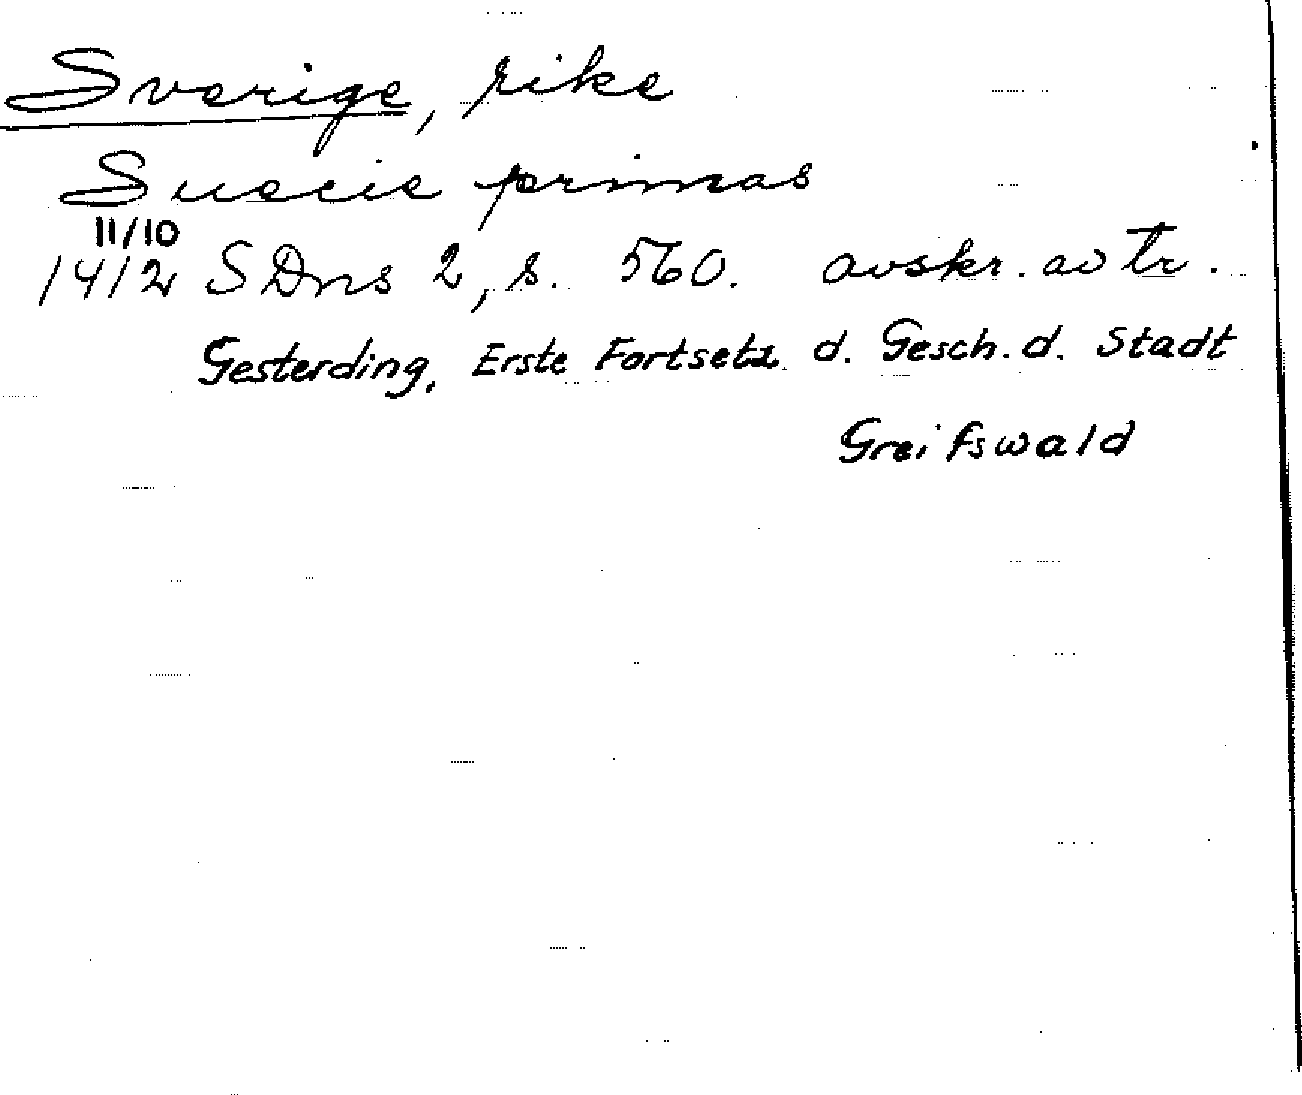 Sverige, rike
Suecie primas
11/10
1412 SDns 2, s. 560. avskr. av Tr.
Gesterding, Erste Fortsetz. d. Gesch. d. Stadt
Greifswald